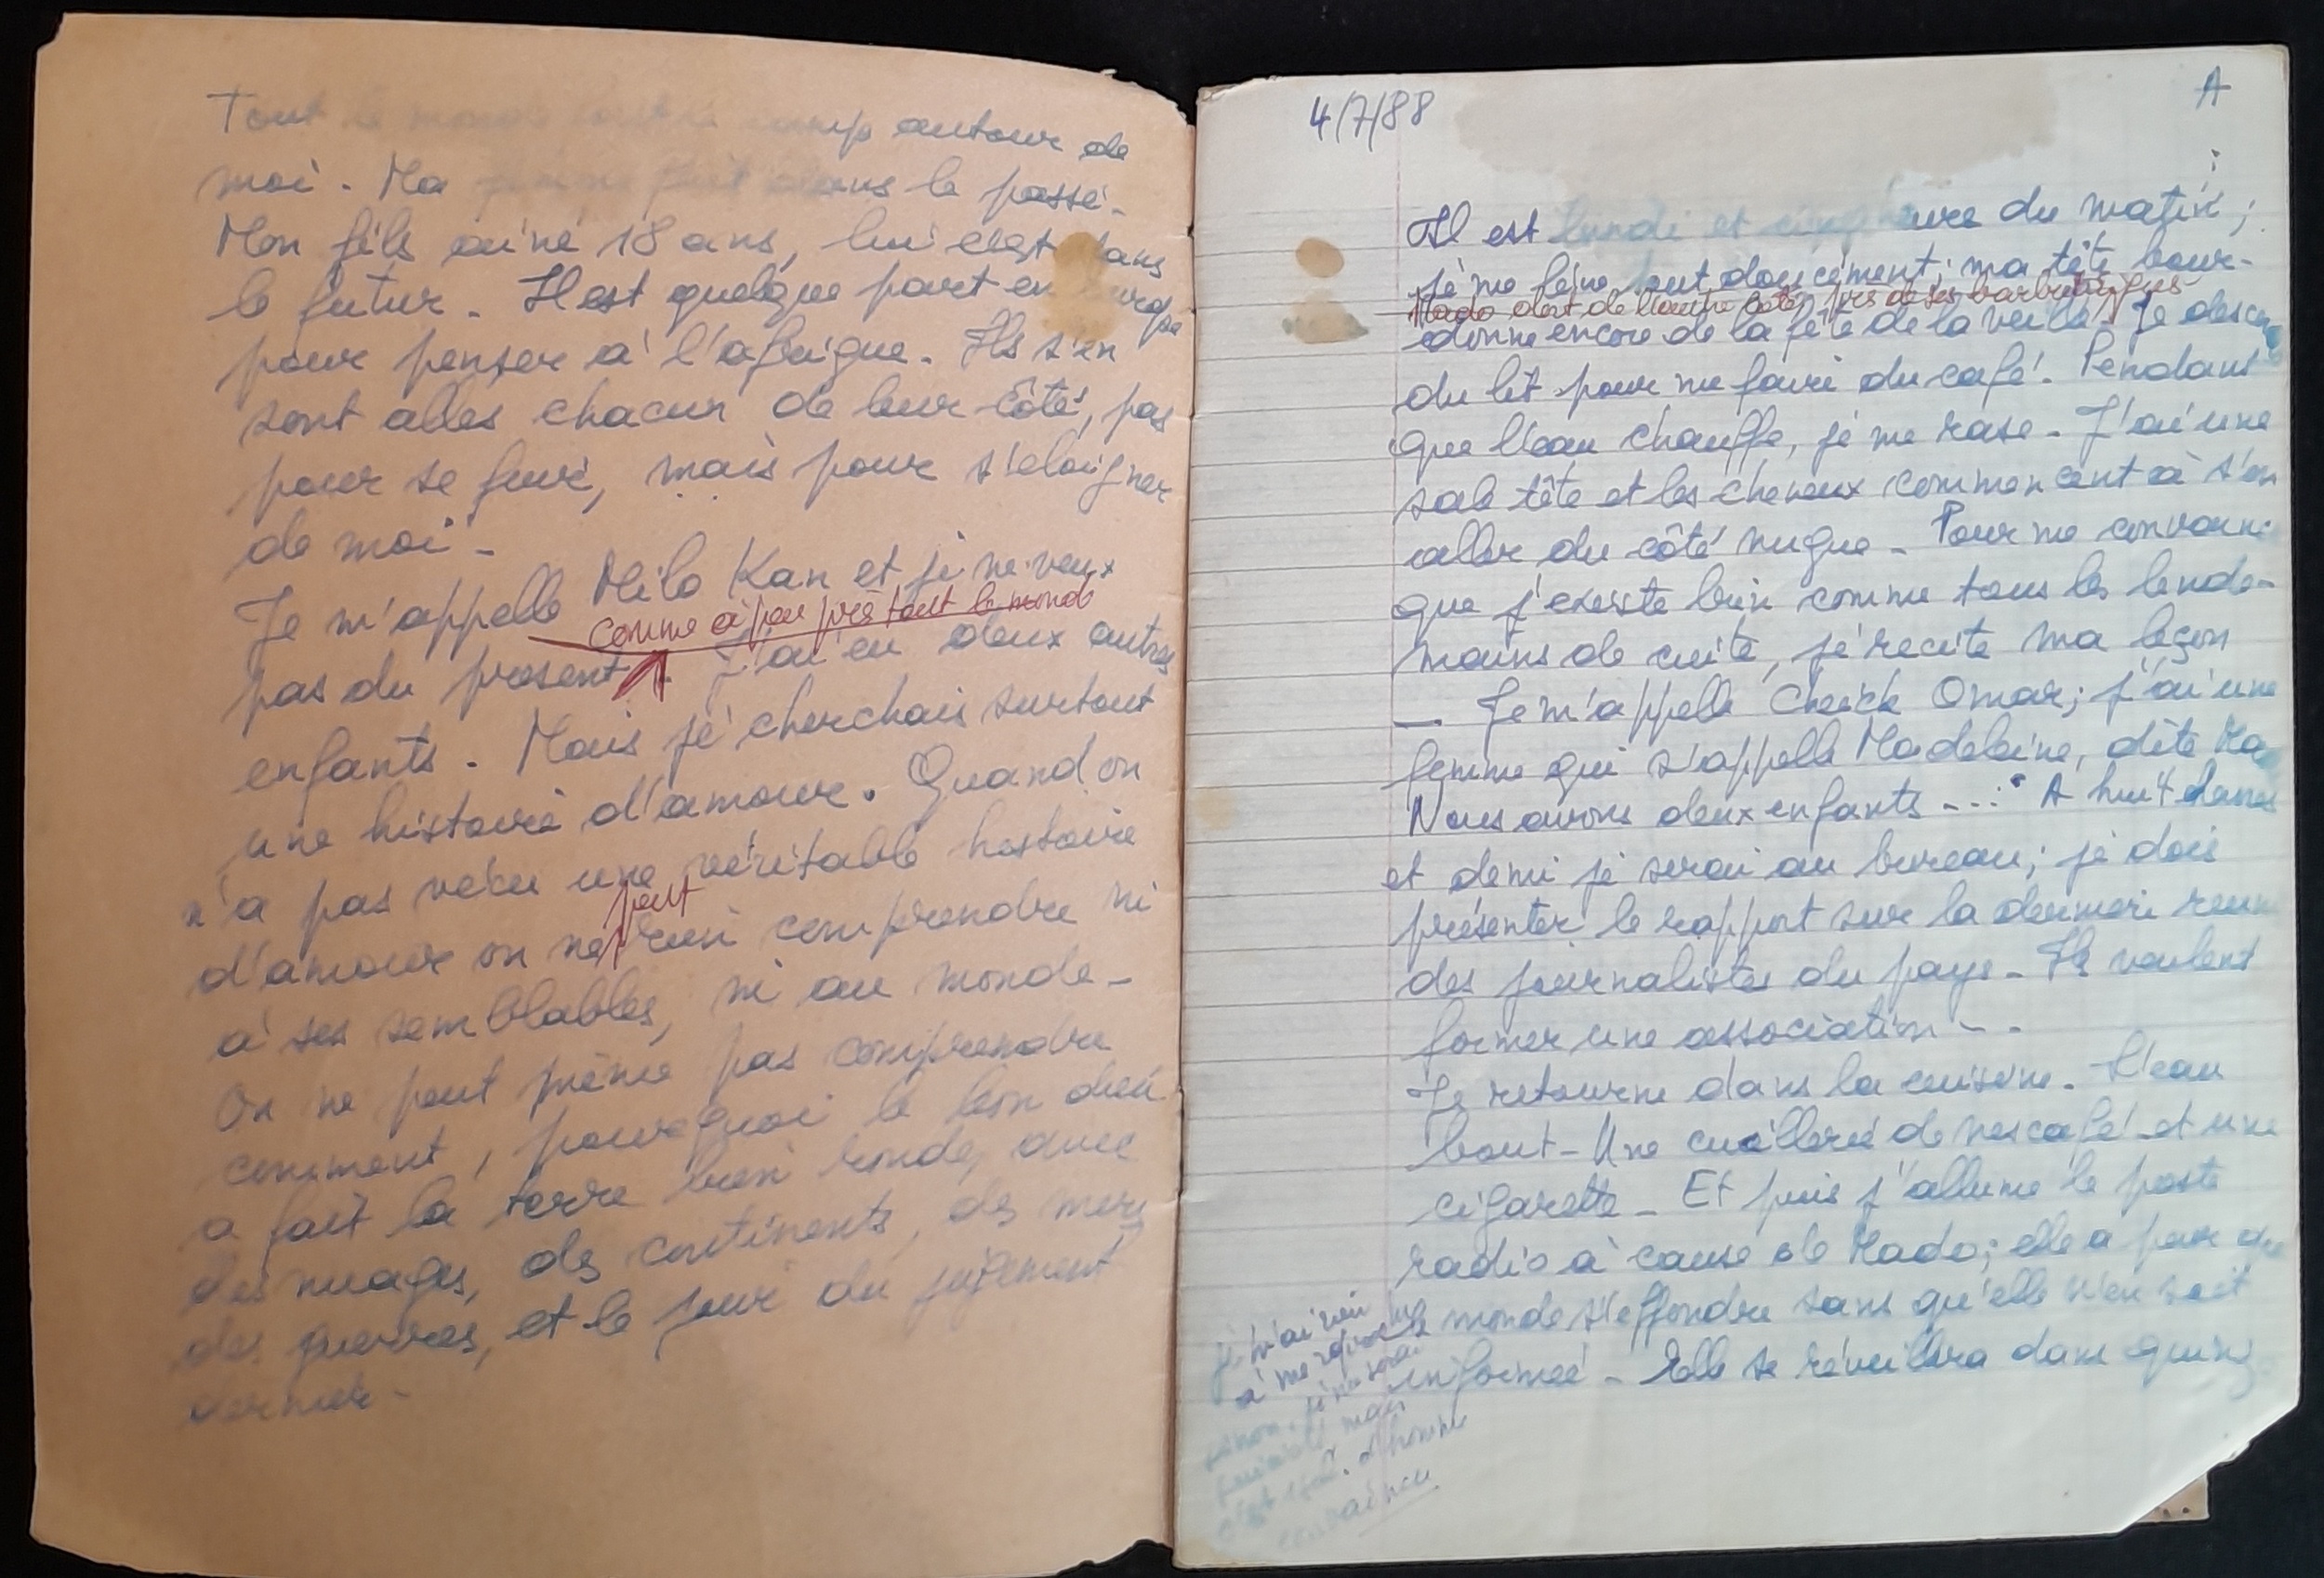 Tout le monde autour de
moi. Ma dans le passé.
Mon fils ainé 18 ans, lui c'est dans
le futur. Il est quelque part en Europe
pour penser à l'afrique. Ils s'en
sont allés chacun de leur côté, pas
pour se fuir, mais pour s'eloigner
de moi.
Je m'appelle Milo Kan et je ne veux
comme à peu près tout le monde
pas du present. J'ai eu deux autres
enfants. Mais je cherchais surtout
une histoire d'amour. Quand on
n'a pas vécu une véritable histoire
peut
d'amour on ne rien comprendre ni
à ses semblables, ni au monde.
On ne peut même pas comprendre
comment, pourquoi le bon dieu
a fait la terre bien ronde, avec
des nuages, des continents, des mers
des guerres, et le jour du jugement
dernier.
4/7/88
A
Il est lundi et cinq heure du matin;
je me lève tout doucement; ma tête bour-
Mado dort de l'autre côté, près de ses
donne encore de la fête de la veille. Je descend
du lit pour me faire du café. Pendant
que l'eau chauffe, je me rase. J'ai une
sale tête et les cheveux commencent à s'en
aller du côté nuque. Pour me convainc
que j'existe bien comme tous les lende-
mains de cuite, je recite ma leçon
— Je m'appelle Cheick Omar; j'ai une
femme qui s'appelle Madeleine, dite Ma
Nous avons deux enfants ...." A huit heures
et demi je serai au bureau; je dois
présenter le rapport sur la derniere reun
des journalistes du pays. Ils veulent
former une association..
Je retourne dans la cuisine. L'eau
bout. Une cuillerée de nescafé et une
cigarette. Et puis j'allume le poste
radio à cause de Mado; elle a peur que
le monde s'effondre sans qu'elle n'en soit
informée. Elle se réveillera dans quinz
je n'ai rien
à me reprocher
sinon, je ne serai
mais
c'est l'homme
convaincu